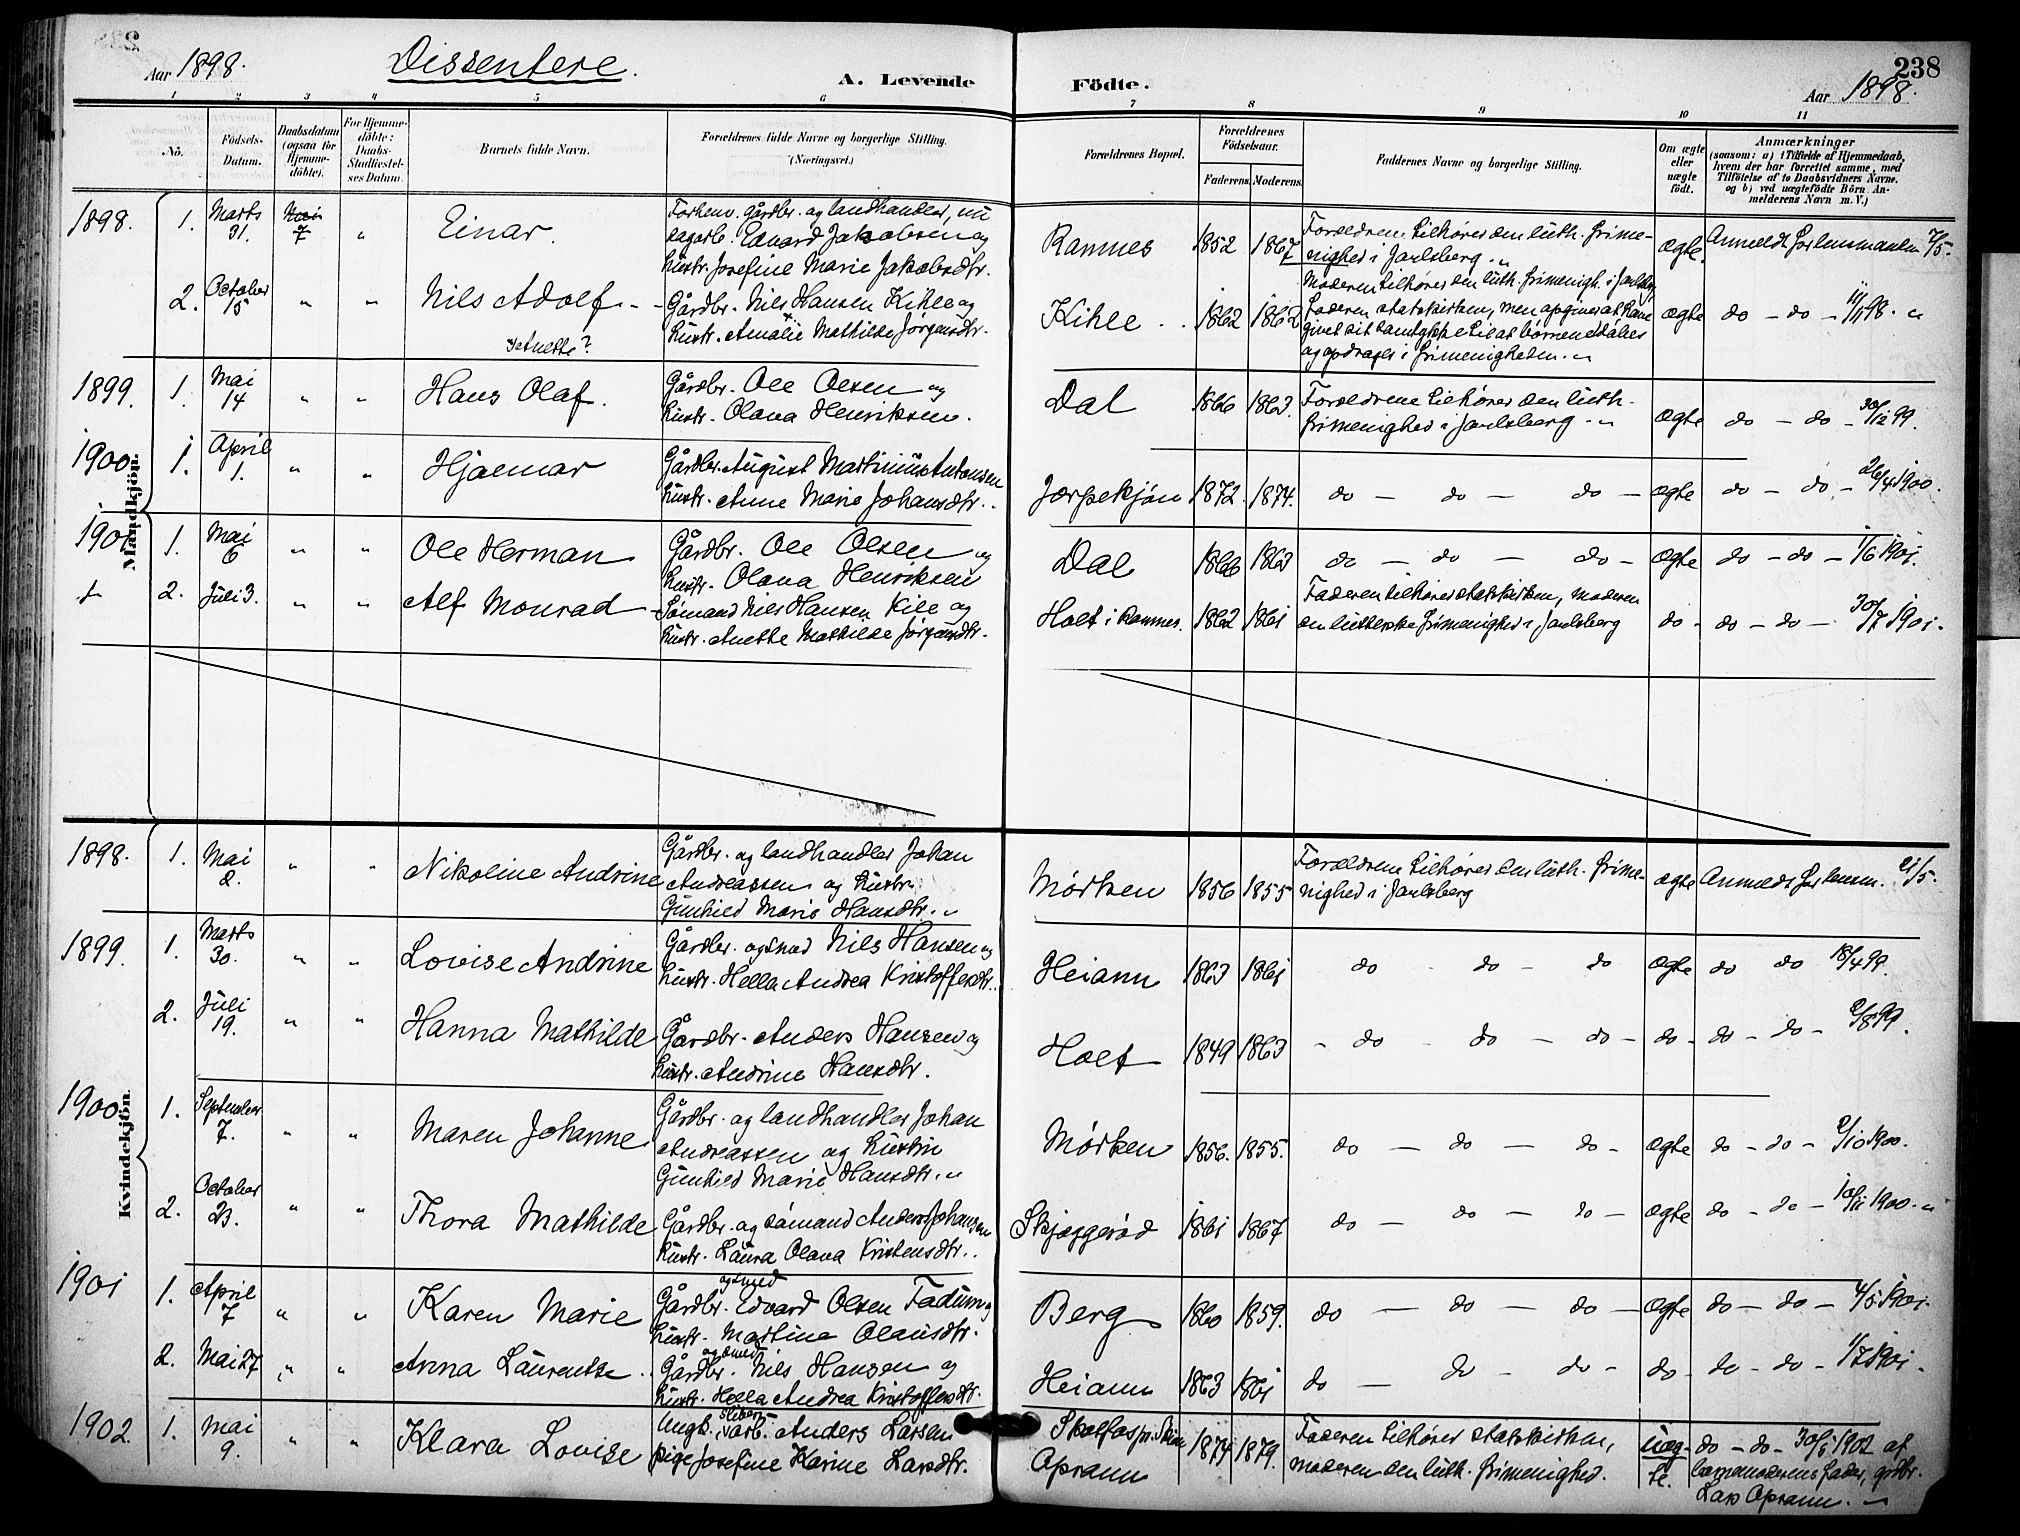 238
Aar 1898. Dissentere. A. Levende Födte. Aar 1898.
1 2 3 4 5 6 7 8 9 10 11
No.
Födsels-
Datum.
Daabsdatum
(ogsaa for
Hjemme-
döbte).
For Hjemme-
döbte:
Daabs-
Stadfæstel-
ses Datum.
Barnets fulde Navn.
Forældrenes fulde Navne og borgerlige Stilling.
(Næringsvei.)
Forældrenes Bopæl.
Forældrenes
Födselsaar.
Faderens. Moderens.
Faddernes Navne og borgerlige Stilling.
Om ægte
eller
uægte
født.
Anmærkninger
(saasom: a) i Tilfælde af Hjemmedaab,
hvem der har forrettet samme, med
Tilföielse af to Daabsvidners Navne.
og b) ved uægtefödte Börn An-
melderens Navn m. V.)
Mandkjön.
1898. 1. Marts 31. Mai 7 " Einar.
Forhenv. gårdbr. og landhandler, nu
sagarb. Edvard Jakobsen og
hustr. Josefine Marie Jakobsdtr.
Ramnes 1852 1867
Forældrene tilhører den luth. frime-
nighed i Jarlsberg. "
ægte. Anmeldt for lensmanden 7/5.
2. October 15 " " Nils Adolf -
Gårdbr. Nils Hansen Kihle og
hustr. Amalie Mathilde Jørgensdtr.
× Anette?
Kihle . . 1862 1862
Moderen tilhører den luth. frimenigh. i Jarlsbg,
Faderen statskirken, men opgives at have
givet sit samtykke til at børnene døbes
og opdrages i frimenigheden. "
ægte do - do - 11/11 98. "
1899. 1. Mai 14 " " Hans Olaf.
Gårdbr. Ole Olsen og
hustr. Olava Henriksen.
Dal 1866 1863.
Forældrene tilhører den luth.
frimenighed i Jarlsberg - "
ægte do - do - 30/12 99.
1900. 1. April 1. " " Hjalmar
Gårdbr. August Martinius Antonsen
hustr. Anne Marie Johansdtr. .
Jærpekjøn 1872. 1874. do - do - do - ægte do - do. - 26/4 1900.
1901 1. Mai 6 " " Ole Herman
Gårdbr. Ole Olsen og
hustr. Olava Henriksen
Dal 1866 1863 do - do - do - ægte do - do - 1/6 1901.
2. Juli 3. " " Alf Monrad -
Sømand Nils Hansen Kile og
hustr. Anette Mathilde Jørgensdtr.
Holt i Ramnes. 1862 1861
Faderen tilhører statskirken, moderen
den lutherske frimenighed i Jarlsberg
do - do - do - 30/7 1901.
Kvindekjön.
1898. 1. Mai 2. " " Nikoline Andrine
Gårdbr. og landhandler Johan
Andreassen og hustr.
Gunhild Marie Hansdtr. "
Mørken 1856 1855
Forældrene tilhører den luth. frime-
nighed i Jarlsberg
ægte Anmeldt for lensm. 21/5.
1899. 1. Marts 30. " " Lovise Andrine
Gårdbr. og smed Nils Hansen og
hustr. Hella Andrea Kristoffersdtr.
Heiann 1863 1861 do - do - do ægte do do 18/4 99.
2. Juli 19. " " Hanna Mathilde
Gårdbr. Anders Hansen og
hustr. Andrine Hansdtr.
Holt 1849 1863 - do - do - do - do - do - do - 2/8 99.
1900. 1. September 7. " " Maren Johanne
Gårdbr. og landhandler Johan
Andreassen og hustru
Gunhild Marie Hansdtr. "
Mørken 1856. 1855. do - do - do - ægte do - do - 2/10 1900.
2. October 23. " " Thora Mathilde
Gårdbr. og sømand Anders Johansen
hustr. Laura Olava Kristensdtr. .
Skjæggerød 1861 1867 do - do - do - ægte do - do - 10/11 1900. "
1901 1. April 7 " " Karen Marie
og smed
Gårdbr. Edvard Olsen Fadum og
hustr. Martine Olausdtr.
Berg 1860 1859. do - do - do - ægte do - do - 4/5 1901.
2. Mai 27 " " Anna Laurentse . .
og smed
Gårdbr. Nils Hansen og
hustr. Hella Andrea Kristoffersdtr.
Heiann 1863 1861 do - do - do - do - do - do - 1/7 1901.
1902. 1. Mai 9. " " Klara Lovise
Ungk. sliberiarb. Anders Larsen
pige Josefine Karine Larsdtr.
Skotfos pr. Skien
Aprann
1874 1879.
Faderen tilhører statskirken,
moderen den luth. frimenighed.
uæg-
te.
do - do - 30/5 1902 af
barnemoderens fader, grdbr.
Lars Aprann. "